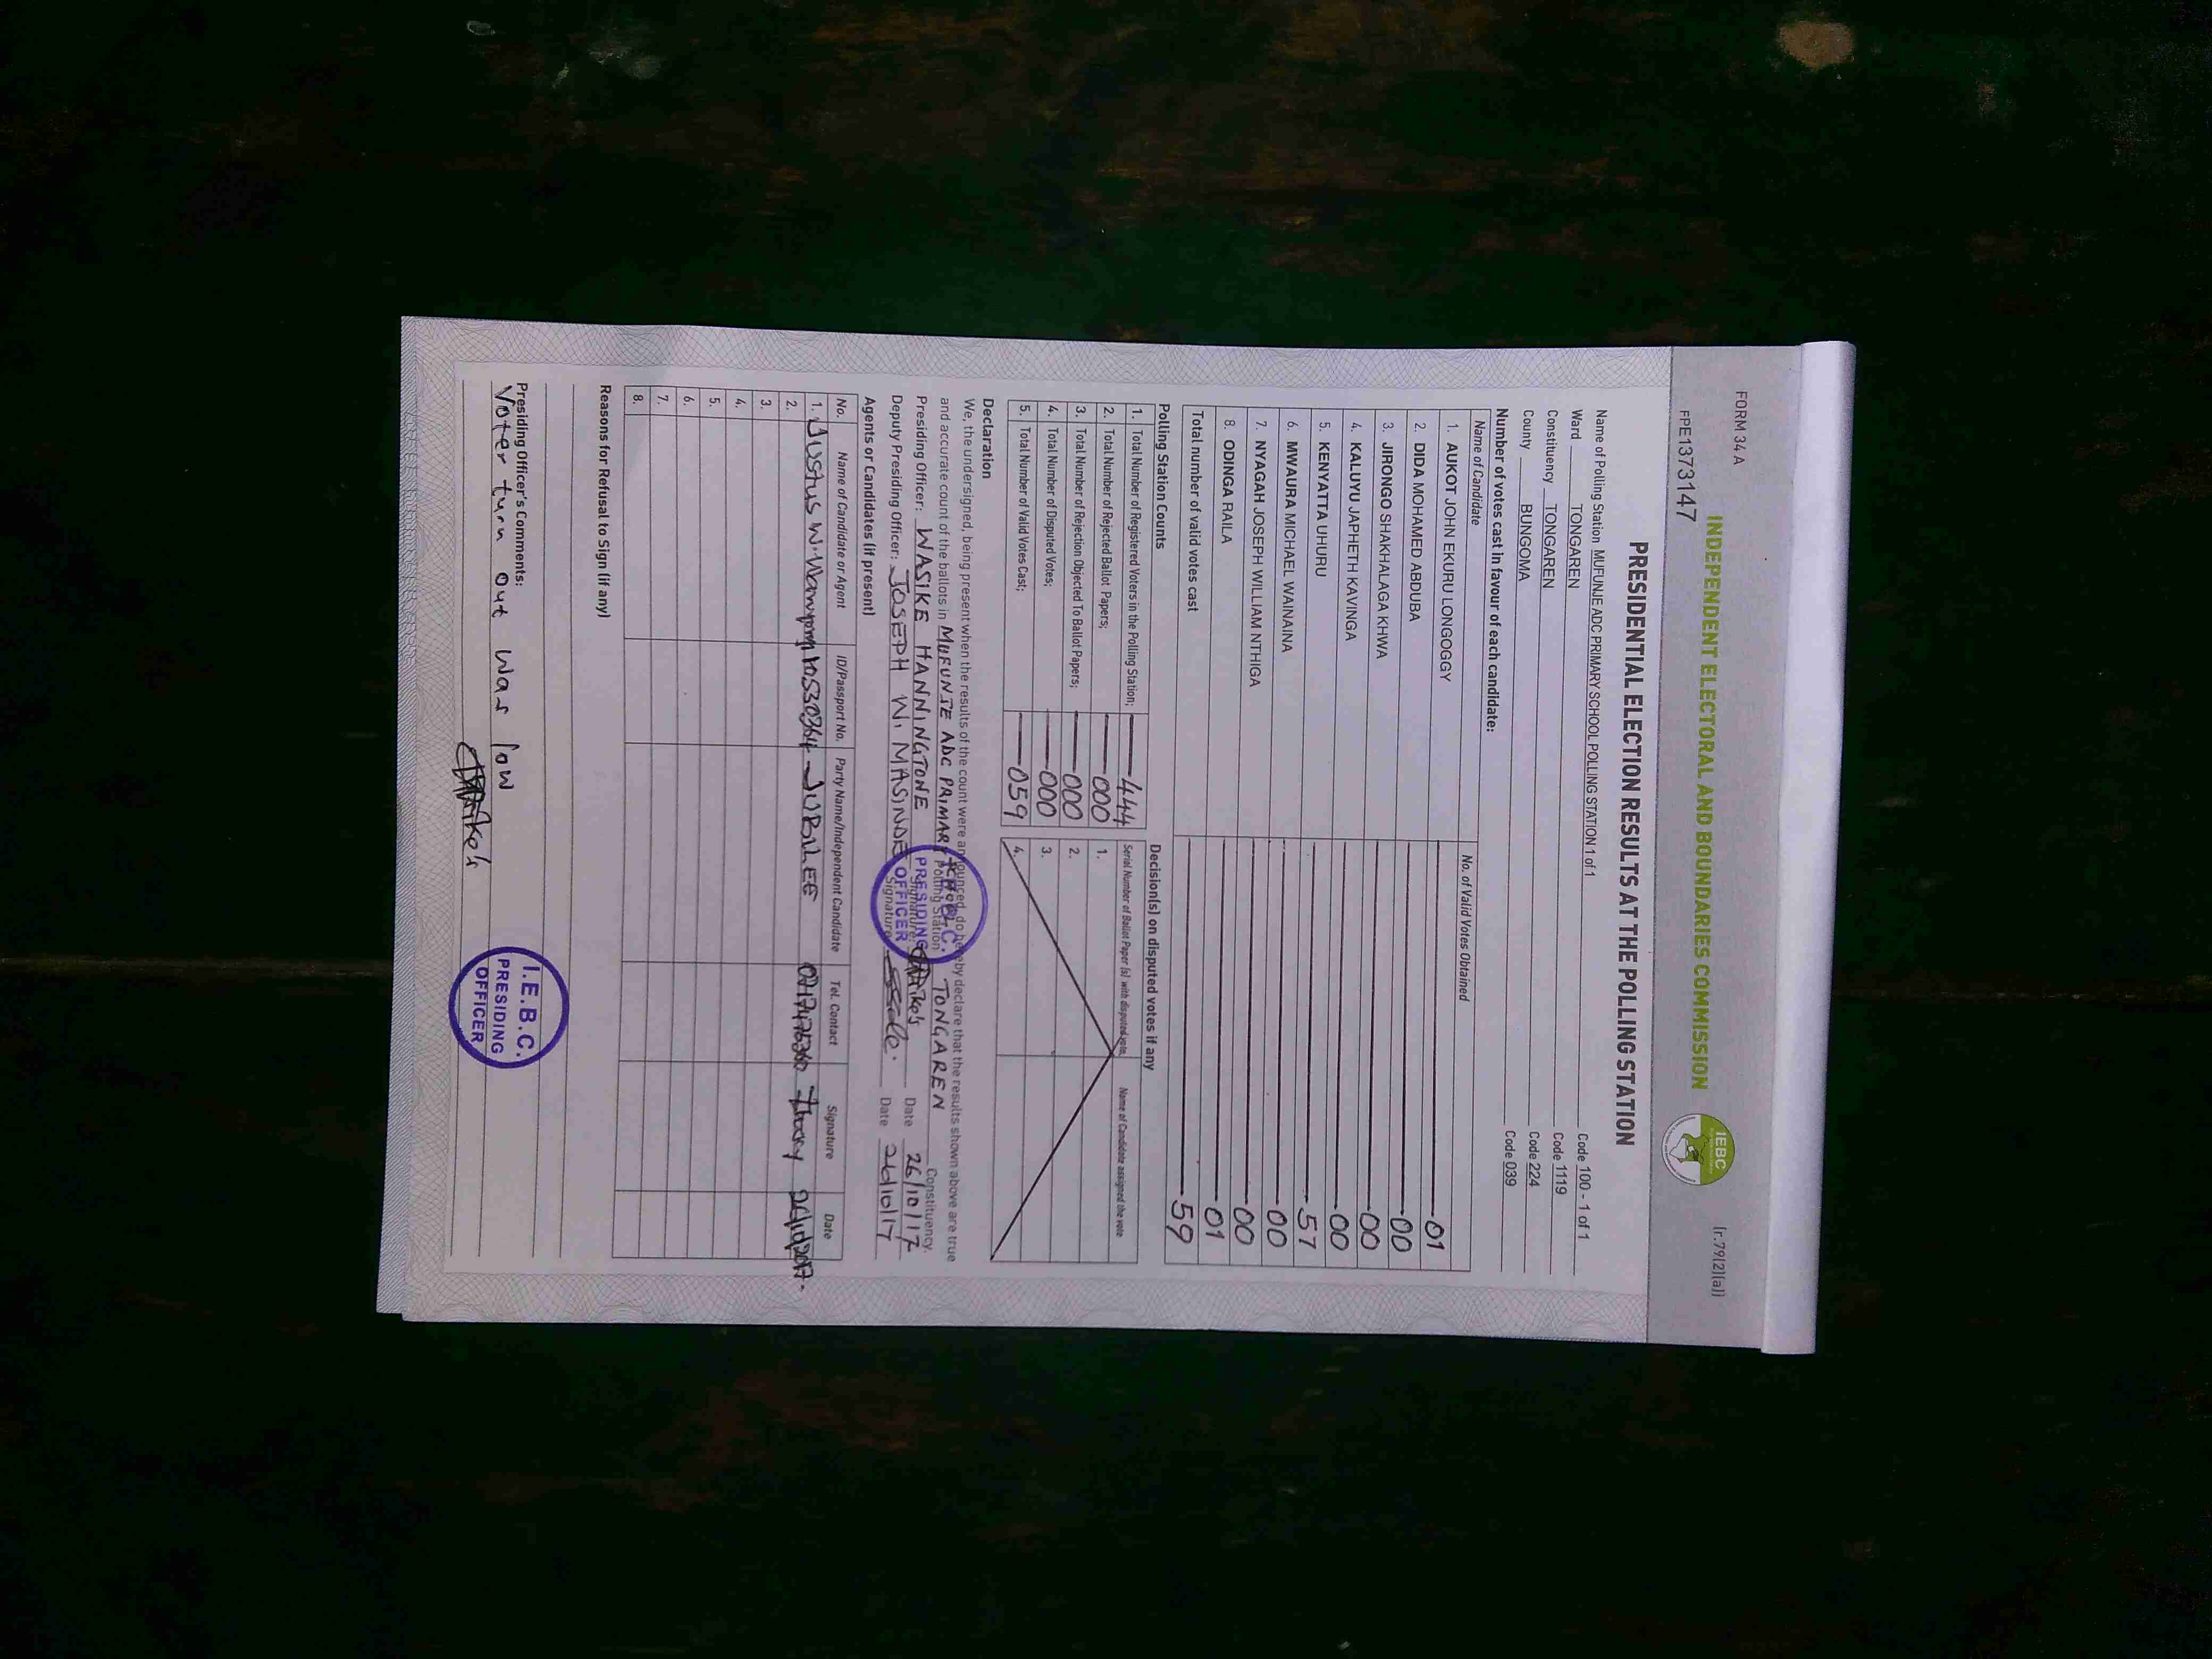 FORM 34 A
[r.79(2)(a)]
INDEPENDENT ELECTORAL AND BOUNDARIES COMMISSION
IEBC
FPE1373147
PRESIDENTIAL ELECTION RESULTS AT THE POLLING STATION
Name of Polling Station MUFUNJE ADC PRIMARY SCHOOL POLLING STATION 1 of 1 Code 100 - 1 of 1
Ward TONGAREN Code 1119
Constituency TONGAREN Code 224
County BUNGOMA Code 039
Number of votes cast in favour of each candidate:
Name of Candidate No. of Valid Votes Obtained
1. AUKOT JOHN EKURU LONGOGGY 01
2. DIDA MOHAMED ABDUBA 00
3. JIRONGO SHAKHALAGA KHWA 00
4. KALUYU JAPHETH KAVINGA 00
5. KENYATTA UHURU 57
6. MWAURA MICHAEL WAINAINA 00
7. NYAGAH JOSEPH WILLIAM NTHIGA 00
8. ODINGA RAILA 01
Total number of valid votes cast 59
Polling Station Counts
1. Total Number of Registered Voters in the Polling Station; 444
2. Total Number of Rejected Ballot Papers; 000
3. Total Number of Rejection Objected To Ballot Papers; 000
4. Total Number of Disputed Votes; 000
5. Total Number of Valid Votes Cast; 059
Decision(s) on disputed votes if any
Serial Number of Ballot Paper (s) with disputed vote. Name of Candidate assigned the vote
1.
2.
3.
4.
Declaration
We, the undersigned, being present when the results of the count were announced, do hereby declare that the results shown above are true
and accurate count of the ballots in MUFUNJE ADC PRIMARY Polling Station TONGAREN Constituency.
Presiding Officer: WASIKE HANNINGTONE Signature Date 26/10/17
Deputy Presiding Officer: JOSEPH W. MASINDE Signature Date 26/10/17
PRESIDING
OFFICER
Agents or Candidates (if present)
No. Name of Candidate or Agent ID/Passport No. Party Name/Independent Candidate Tel. Contact Signature Date
1. Justus W. JUBILEE 26/10/2017
2.
3.
4.
5.
6.
7.
8.
Reasons for Refusal to Sign (if any)
Presiding Officer's Comments:
Voter turn out was low
I.E.B.C.
PRESIDING
OFFICER